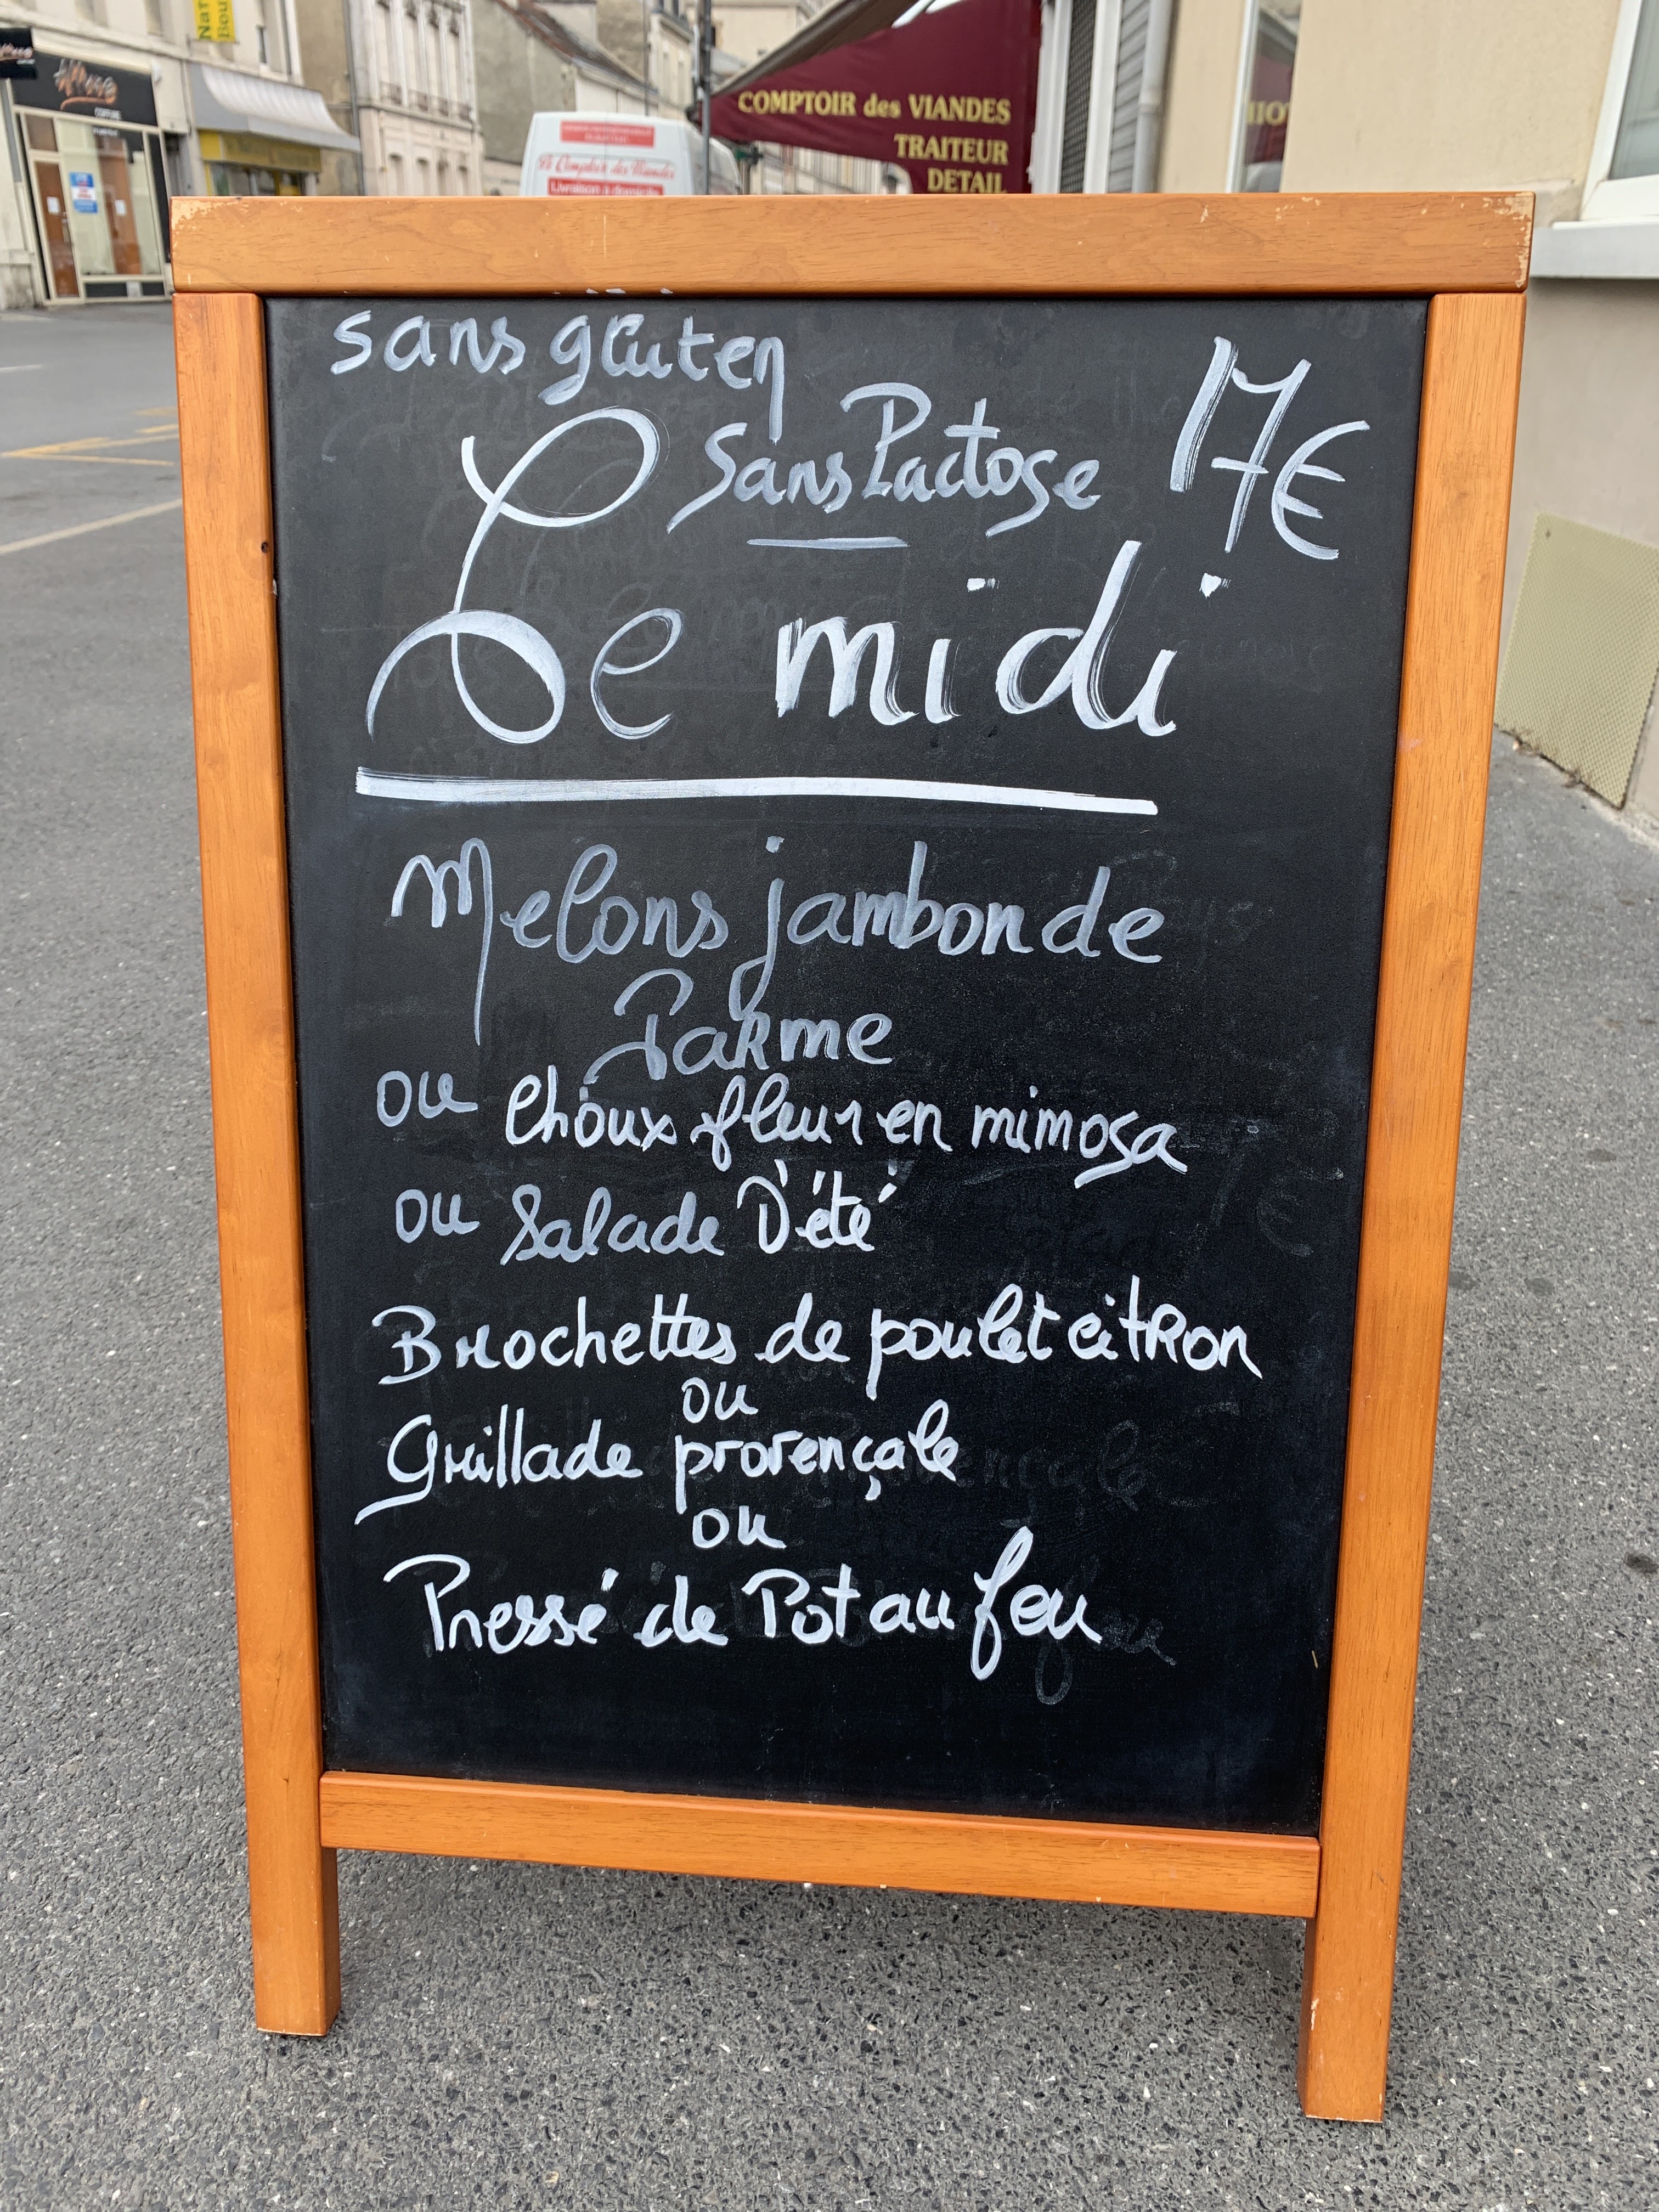 COMPTOIR des VIANDES
TRAITEUR
DETAIL
Le Comptoir des Viandes
Livraison à domicile
sans gluten
sans lactose
17€
Le midi
Melons jambon de
Parme
ou Choux fleur en mimosa
ou Salade D'été
Brochettes de poulet citron
ou
Grillade provençale
ou
Pressé de Pot au feu